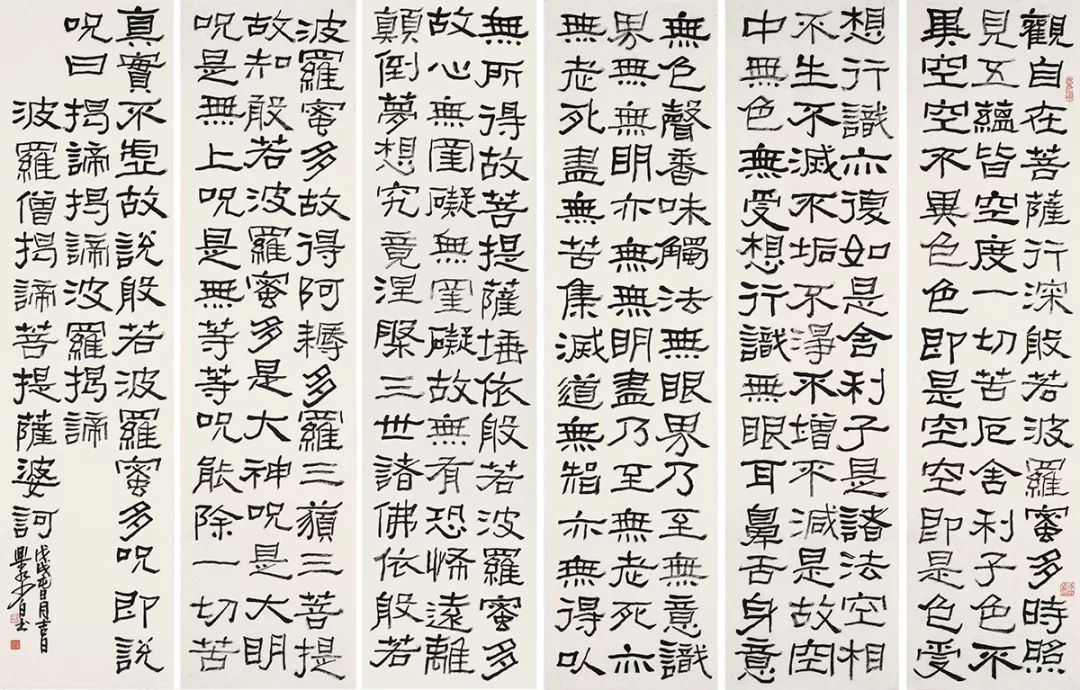 觀自在菩薩行深般若波羅蜜多時照
見五蘊皆空度一切苦厄舍利子色不
異空空不異色色即是空空即是色受
想行識亦復如是舍利子是諸法空相
不生不滅不垢不淨不增不減是故空
中無色無受想行識無眼耳鼻舌身意
無色聲香味觸法無眼界乃至無意識
界無無明亦無無明盡乃至無老死亦
無老死盡無苦集滅道無智亦無得以
無所得故菩提薩埵依般若波羅蜜多
故心無罣礙無罣礙故無有恐怖遠離
顛倒夢想究竟涅槃三世諸佛依般若
波羅蜜多故得阿耨多羅三藐三菩提
故知般若波羅蜜多是大神呪是大明
呪是無上呪是無等等呪能除一切苦
真實不虛故說般若波羅蜜多呪即說
呪曰 揭諦揭諦波羅揭諦
波羅僧揭諦菩提薩婆訶
戊戌月吉日